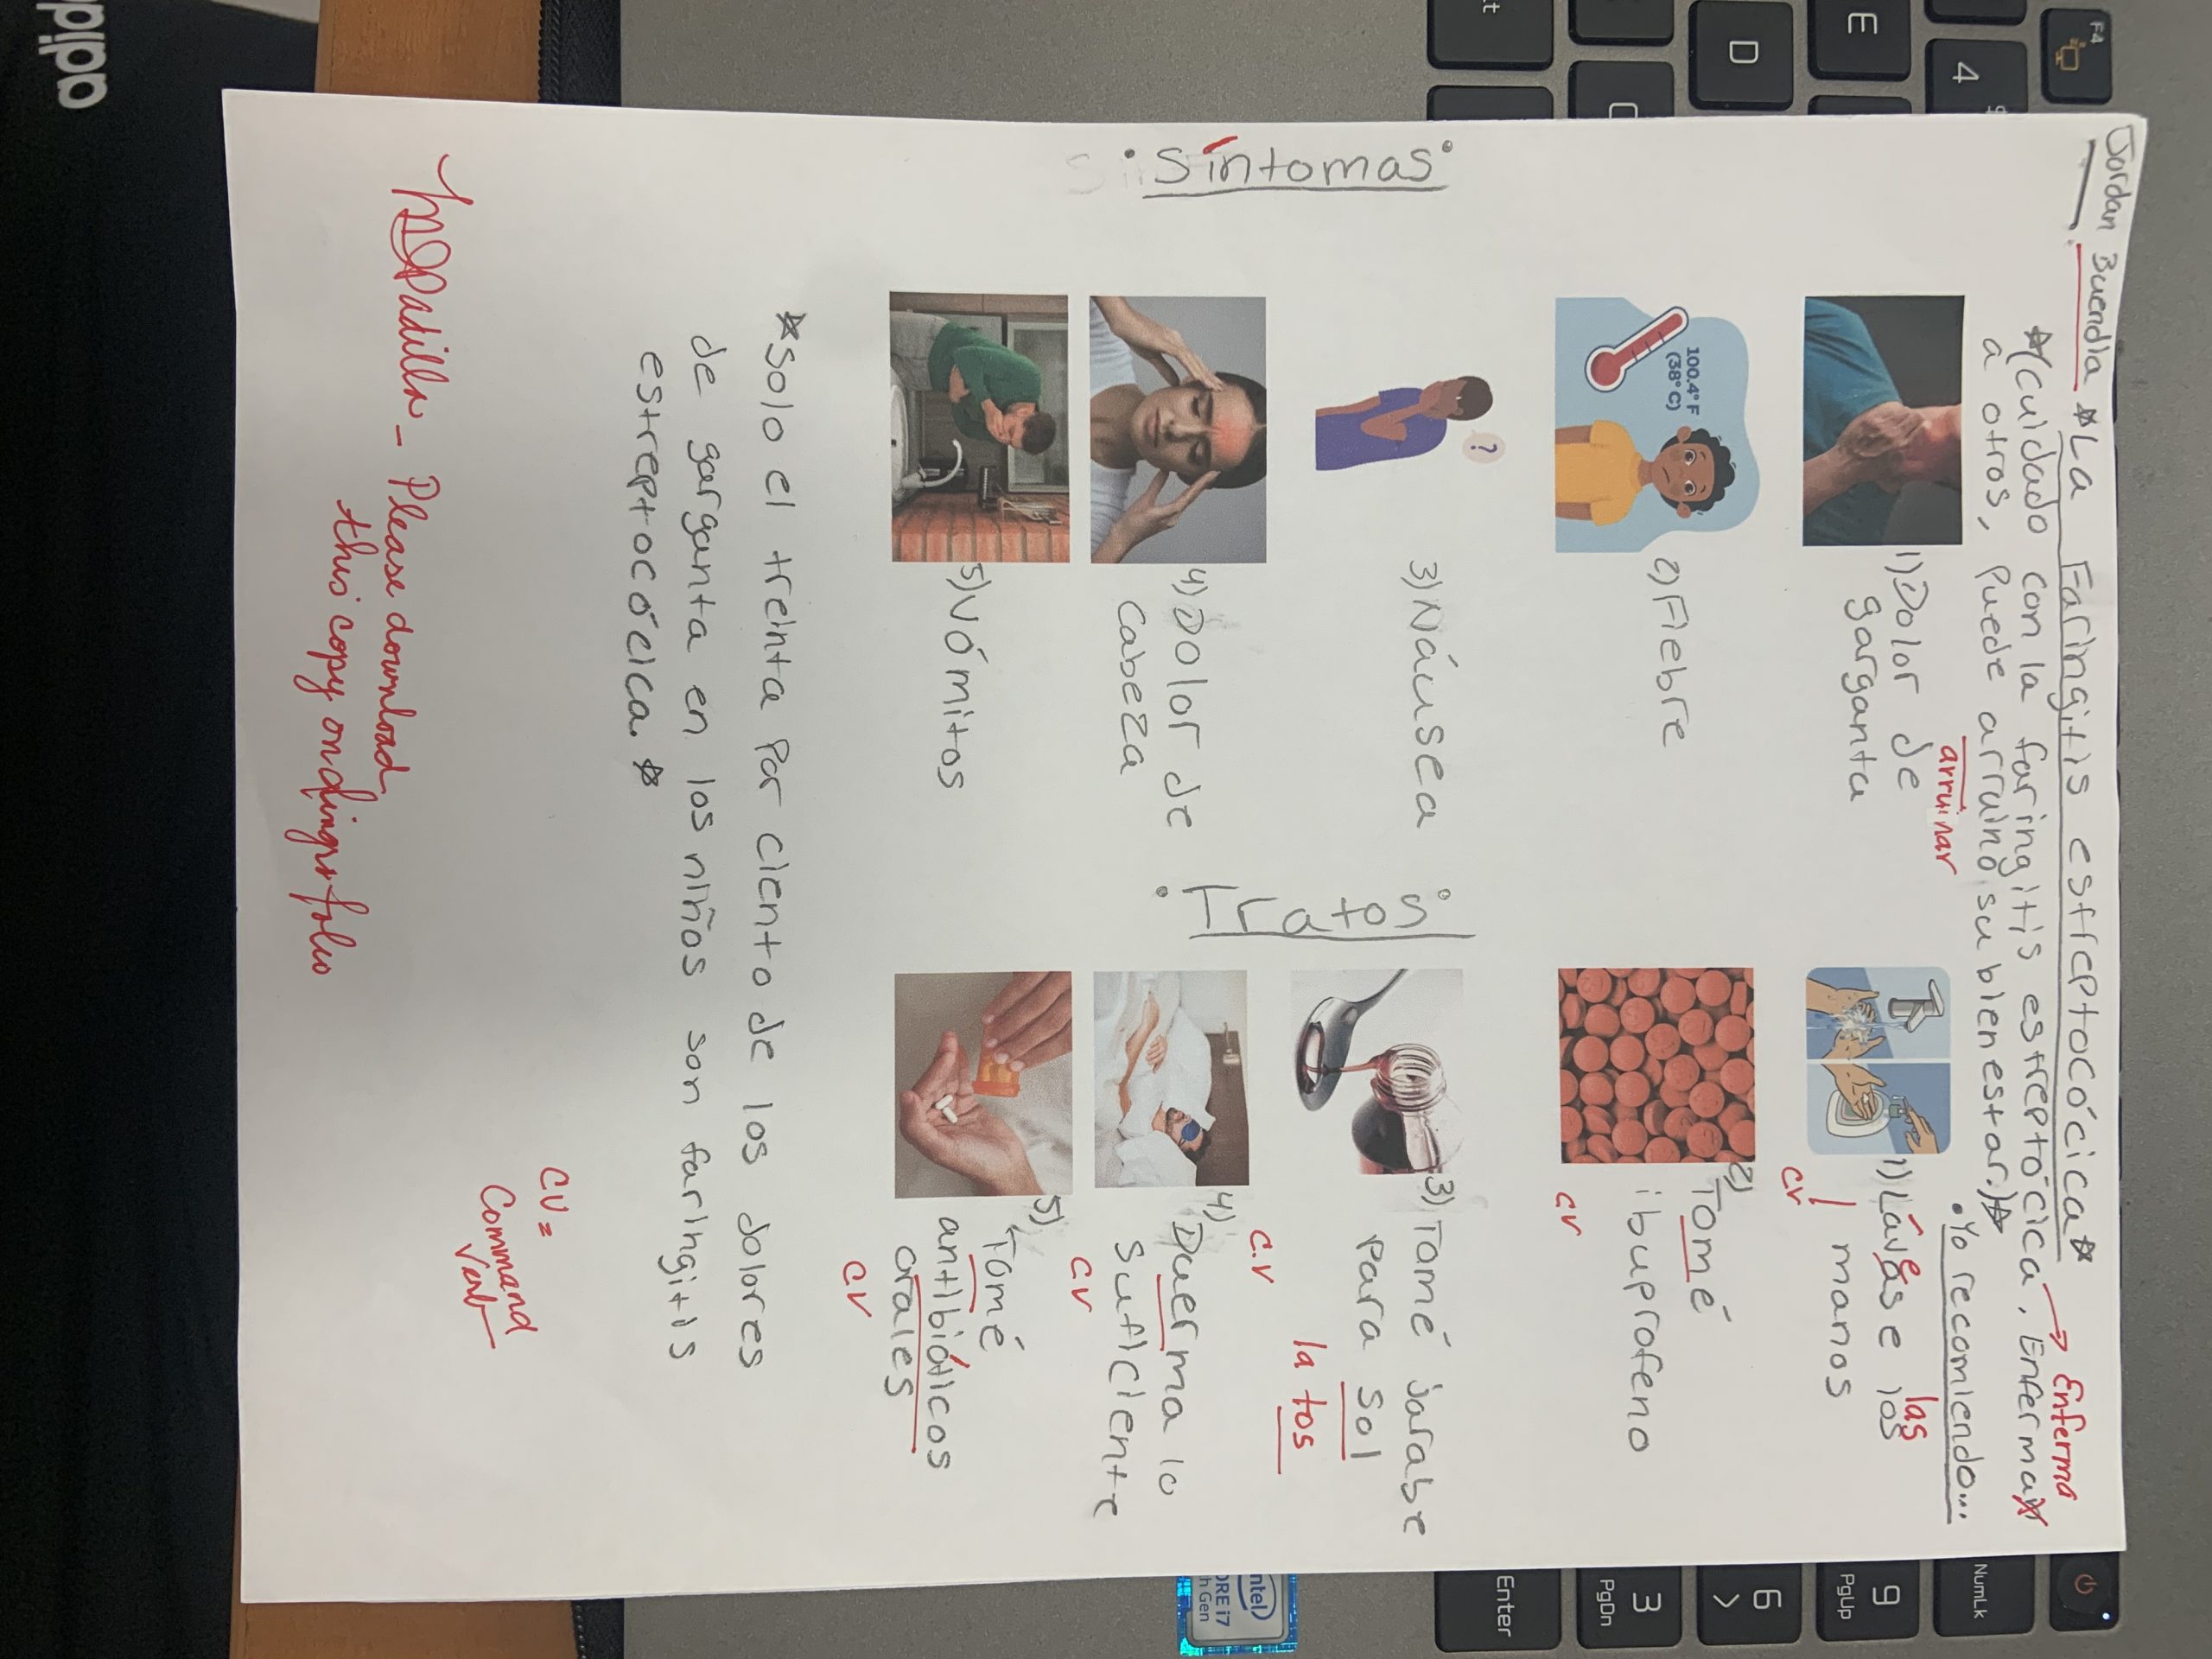 Jordan Buendía
☆La Faringitis estreptocócica☆
☆(cuidado con la faringitis estreptócica, Enferman → Enferma
a otros, Puede arruinó su bienestar.)☆
arruinar
•Síntomas•
1) Dolor de
garganta
100.4° F
(38° C)
2) Fiebre
?
3) Náusea
4) Dolor de
Cabeza
5) Vómitos
•Tratos•
•Yo recomiendo...
1) Lávase los
e
las
manos
cv
2) Tomé
ibuprofeno
cv
3) Tomé Jarabe
Para sol
la tos
c.v
4) Duerma lo
suficiente
cv
5) Tomé
antibióticos
orales
cv
☆Solo el treinta Por ciento de los dolores
de garganta en los niños son faringitis
estreptocócica.☆
cv =
Command
Verb
Padilla - Please download
this copy on digiportfolio
adid
F4
4
E
D
NumLk
9
PgUp
6
3
PgDn
Enter
intel
CORE i7
h Gen